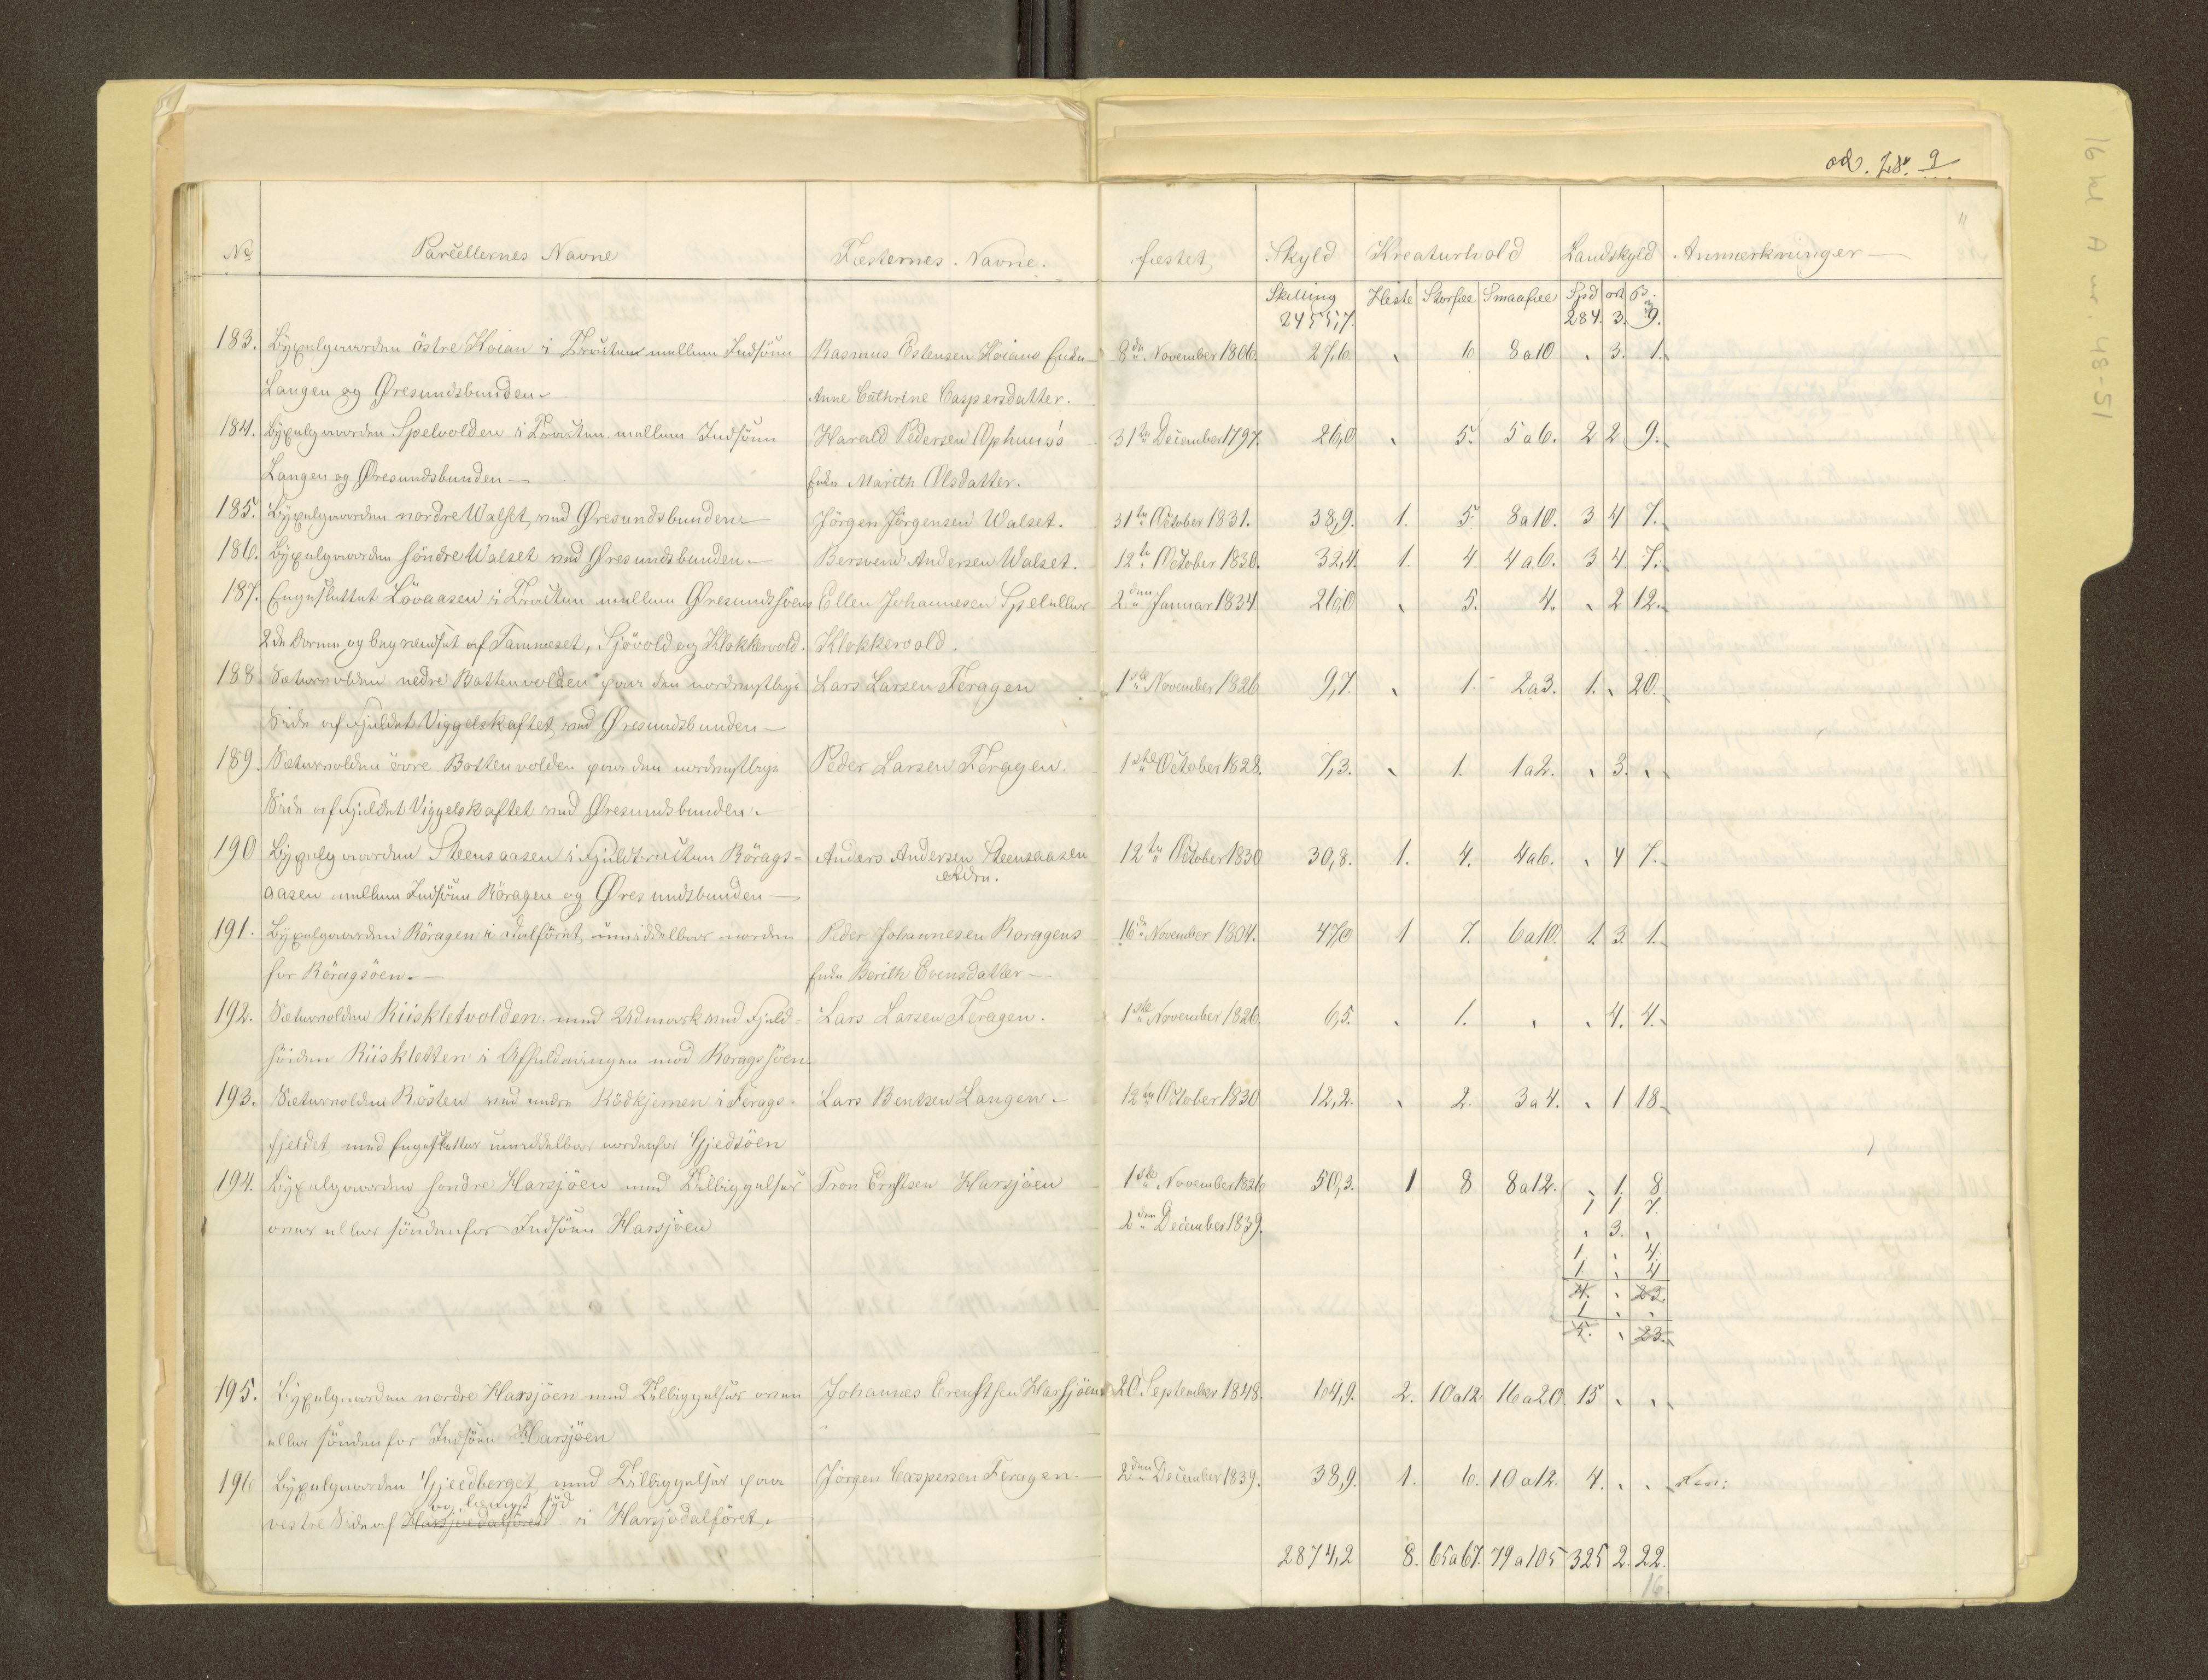 № Parcellernes Navne Fæsternes Navne. fæstet Skyld Kreaturhold Landskyld Anmerkninger
Skilling Heste Storfæe Smaafæe Spd ort
2455,7. 284. 3. 9.
183. Bÿxelgaarden östre Hoian i Tracten mellem Indsöen Rasmus Estensen Hoians Enke 8de November 1806. 27,6. 6 8 a 10 3. 1.
Langen og Øresundsbunden Anne Cathrine Caspersdatter.
184. Bÿxelgaarden Spelvolden i Tracten mellem Indsöen Harald Pedersen Ophuus's 31te December 1797. 26,0 5. 5 a 6. 2 2 9.
Langen og Øresundsbunden Enke Marith Olsdatter.
185. Bÿxelgaarden nordre Walset ved Øresundsbunden Jörgen Jörgensen Walset. 31te October 1831. 38,9. 1. 5. 8 a 10. 3 4 7.
186. Bÿxelgaarden söndre Walset ved Øresundsbunden. Bersvend Andersen Walset. 12te October 1830. 32,4. 1. 4. 4 a 6. 3 4. 7.
187. Engeslettet Lövaasen i Tracten mellem Øresundsöens Ellen Johannesen Speleller 2den Januar 1834 26,0 5. 4. 2 12.
2de Borme og begrændset af Tamneset, Sjövold og Klokkervold. Klokkervold.
188 Sætervolden nedre Battenvolden paa den nordvestlige Lars Larsen Feragen 1ste November 1826 9,7. 1. 2 a 3. 1. 20.
Side af Fjeldet Viggelskaftet ved Øresundsbunden
189. Sætervolden övre Battenvolden paa den nordvestlige Peder Larsen Feragen. 1ste October 1828. 7,3. 1. 1 a 2. 3.
Side af Fjeldet Viggelskaftet ved Øresundsbunden.
190 Bÿxelgaarden Steensaasen i Fjeldtracten Rörags- Anders Andersen Steensaasen 12te October 1830 30,8. 1. 4. 4 a 6. 4 7.
aasen mellem Indsöen Röragen og Øresundsbunden
191. Bÿxelgaarden Röragen i Dalföret umiddelbar norden Peder Johannesen Roragens 16de November 1804. 47,0 1 7. 6 a 10. 1. 3. 1.
for Röragsöen. Enke Berith Evensdatter
192. Sætervolden Riiskletvolden med Udmark ved Fjeld- Lars Larsen Feragen. 1ste November 1826 6,5. 1. 4. 4.
höiden Riiskletten i Afheldningen mod Roragssöen.
193. Sætervolden Rösten ved nedre Rödkjernen i Ferags- Lars Bentsen Langen. 12te October 1830 12,2. 2. 3 a 4. 1 18.
fjeldet med Engesletter umiddelbar nordenfor Gjedsöen
194. Bÿxelgaarden söndre Harsjöen med Tilbÿggelser Tron Erichsen Harsjöen 1ste November 1826 50,3. 1 8 8 a 12. 1. 8
1 1 7.
oven eller söndenfor Indsöen Harsjöen 2den December 1839. 3.
1. 4.
1. 4
4. 22.
1
5. 23.
195. Bÿxelgaarden nordre Harsjöen med Tilbÿggelser oven Johannes Erenstsen Harsjöen 20 September 1848. 104,9. 2. 10 a 12 16 a 20. 15
eller söndenfor Indsöen Harsjöen
196 Bÿxelgaarden Gjeedberget med Tilbÿggelser paa Jörgen Caspersen Feragen. 2den December 1839. 38,9. 1. 6. 10 a 12. 4.
og længst Sÿd
vestre Side af Harsjoedalföret i Harsjödalföret.
2874,2 8. 65 a 67. 79 a 105 325 2. 22.
16.
16 kl A nr. 48-51